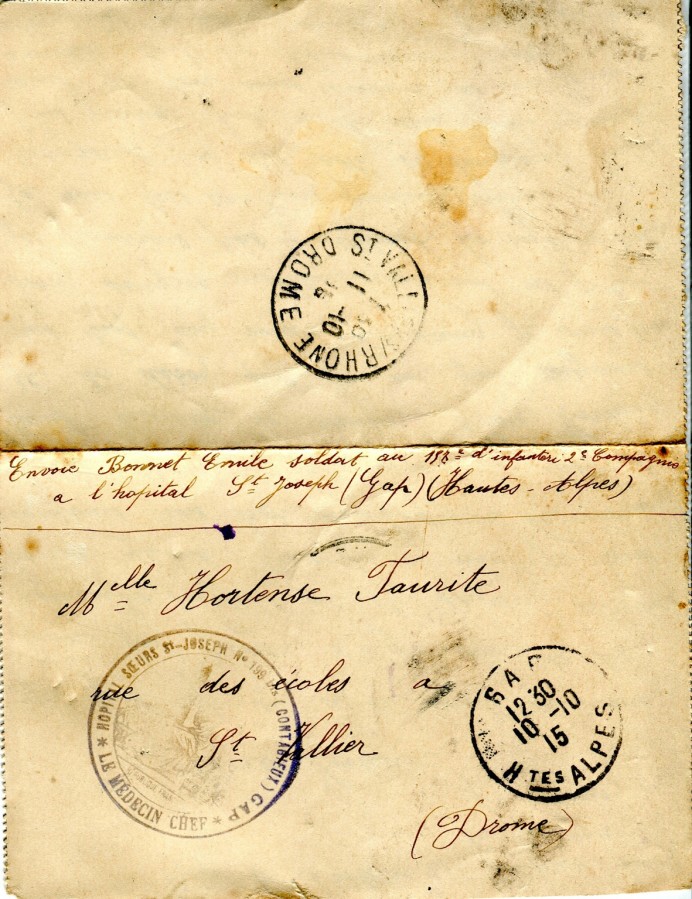 S RHONE DROME
11 -10
Envoie Bonnet Emile soldat au d'infanteri 2e Compagnie
a l'hopital St Joseph (Gap) (Hautes-Alpes)
Melle Hortense Taurite
rue des écoles a
St Vallier
(Drome)
HOPITAL SŒURS St-JOSEPH No (CONTAGIEUX) GAP
* LE MEDECIN CHEF *
GAP
12 30
10 -10
15
HTES ALPES